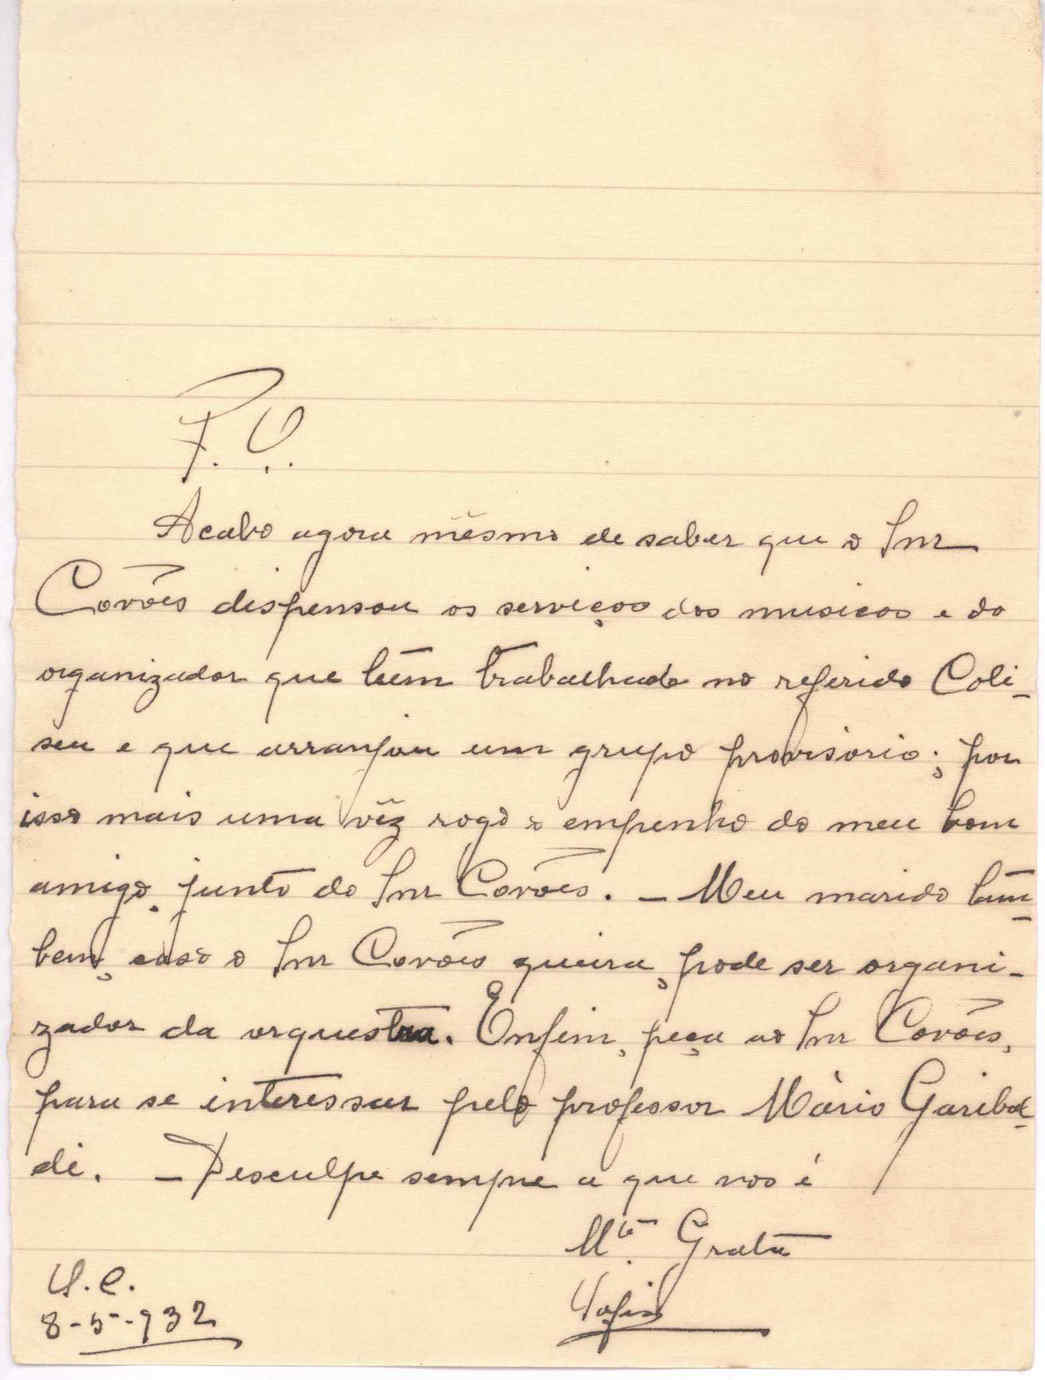 P. S.
Acabo agora mêsmo de saber que o Snr
Covões dispensou os serviços dos musicos e do
organizador que teem trabalhado no referido Coli-
seu e que arranjou um grupo provisorio; por
isso mais uma vêz rogo o empenho do meu bom
amigo, junto do Snr Covões. – Meu marido tam-
bem, caso o Snr Covões queira, pode ser organi-
zador da orquestra. Enfim, peça ao Snr Covões,
para se interessar pelo professor Mário Garibal-
di. – Desculpe sempre a que vos é
Mto Grata
S. C.
8-5-932